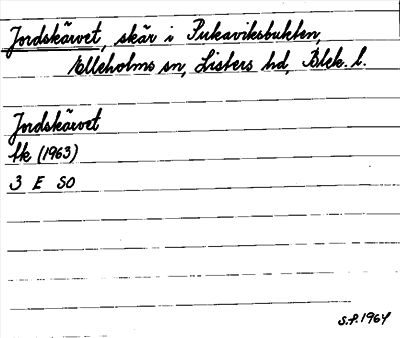 Jordskärvet, skär i Pukaviksbukten,
Elleholms sn, Listers hd, Blek. l.
Jordskärvet
fk (1963)
3 E SO
S.F. 1964